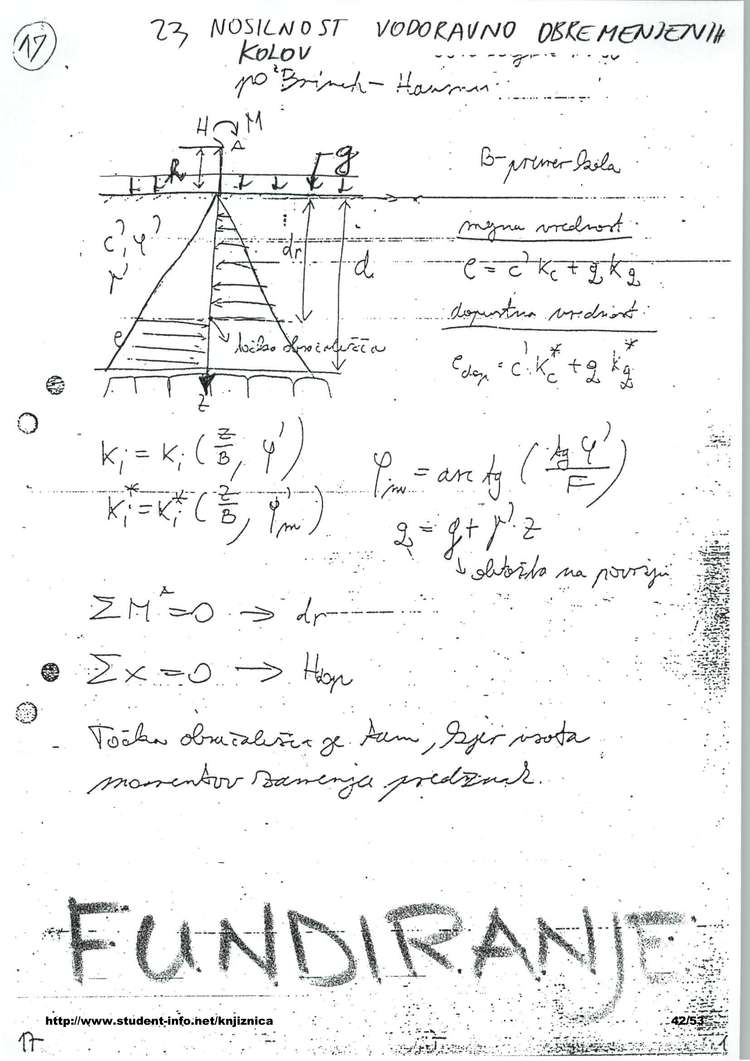 17
23 NOSILNOST VODORAVNO OBREMENJENIH
KOLOV
po Brinch-Hansnu
H M
A
h g
B-premer kola
c', φ'
γ'
dr
d
mejna vrednost
e = c' Kc + q Kq
dopustna vrednost
e dop = c' Kc* + q Kq*
e
točka obračališča
z
Ki = Ki (z/B, φ')
Ki* = Ki* (z/B, φ'm)
φ'm = arc tg (tg φ'/F)
q = g + γ' z
↓ obtežba na površju
ΣM^A = 0 → dr
ΣX = 0 → Hdop
Točka obračališča je tam, kjer vsota
momentov zamenja predznak.
FUNDIRANJE
http://www.student-info.net/knjiznica 42/53
17